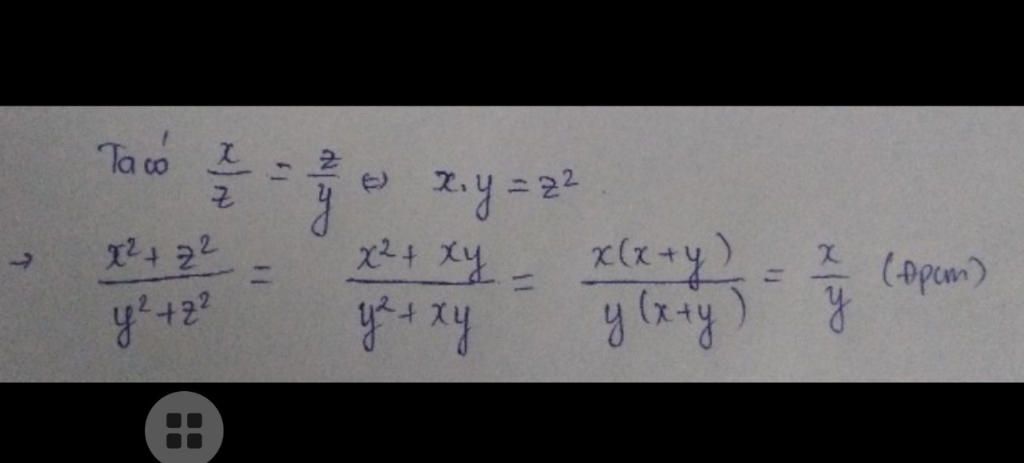 Ta có x/z = z/y ⇔ x.y = z²
→ (x² + z²)/(y² + z²) = (x² + xy)/(y² + xy) = x(x + y)/y(x + y) = x/y (đpcm)